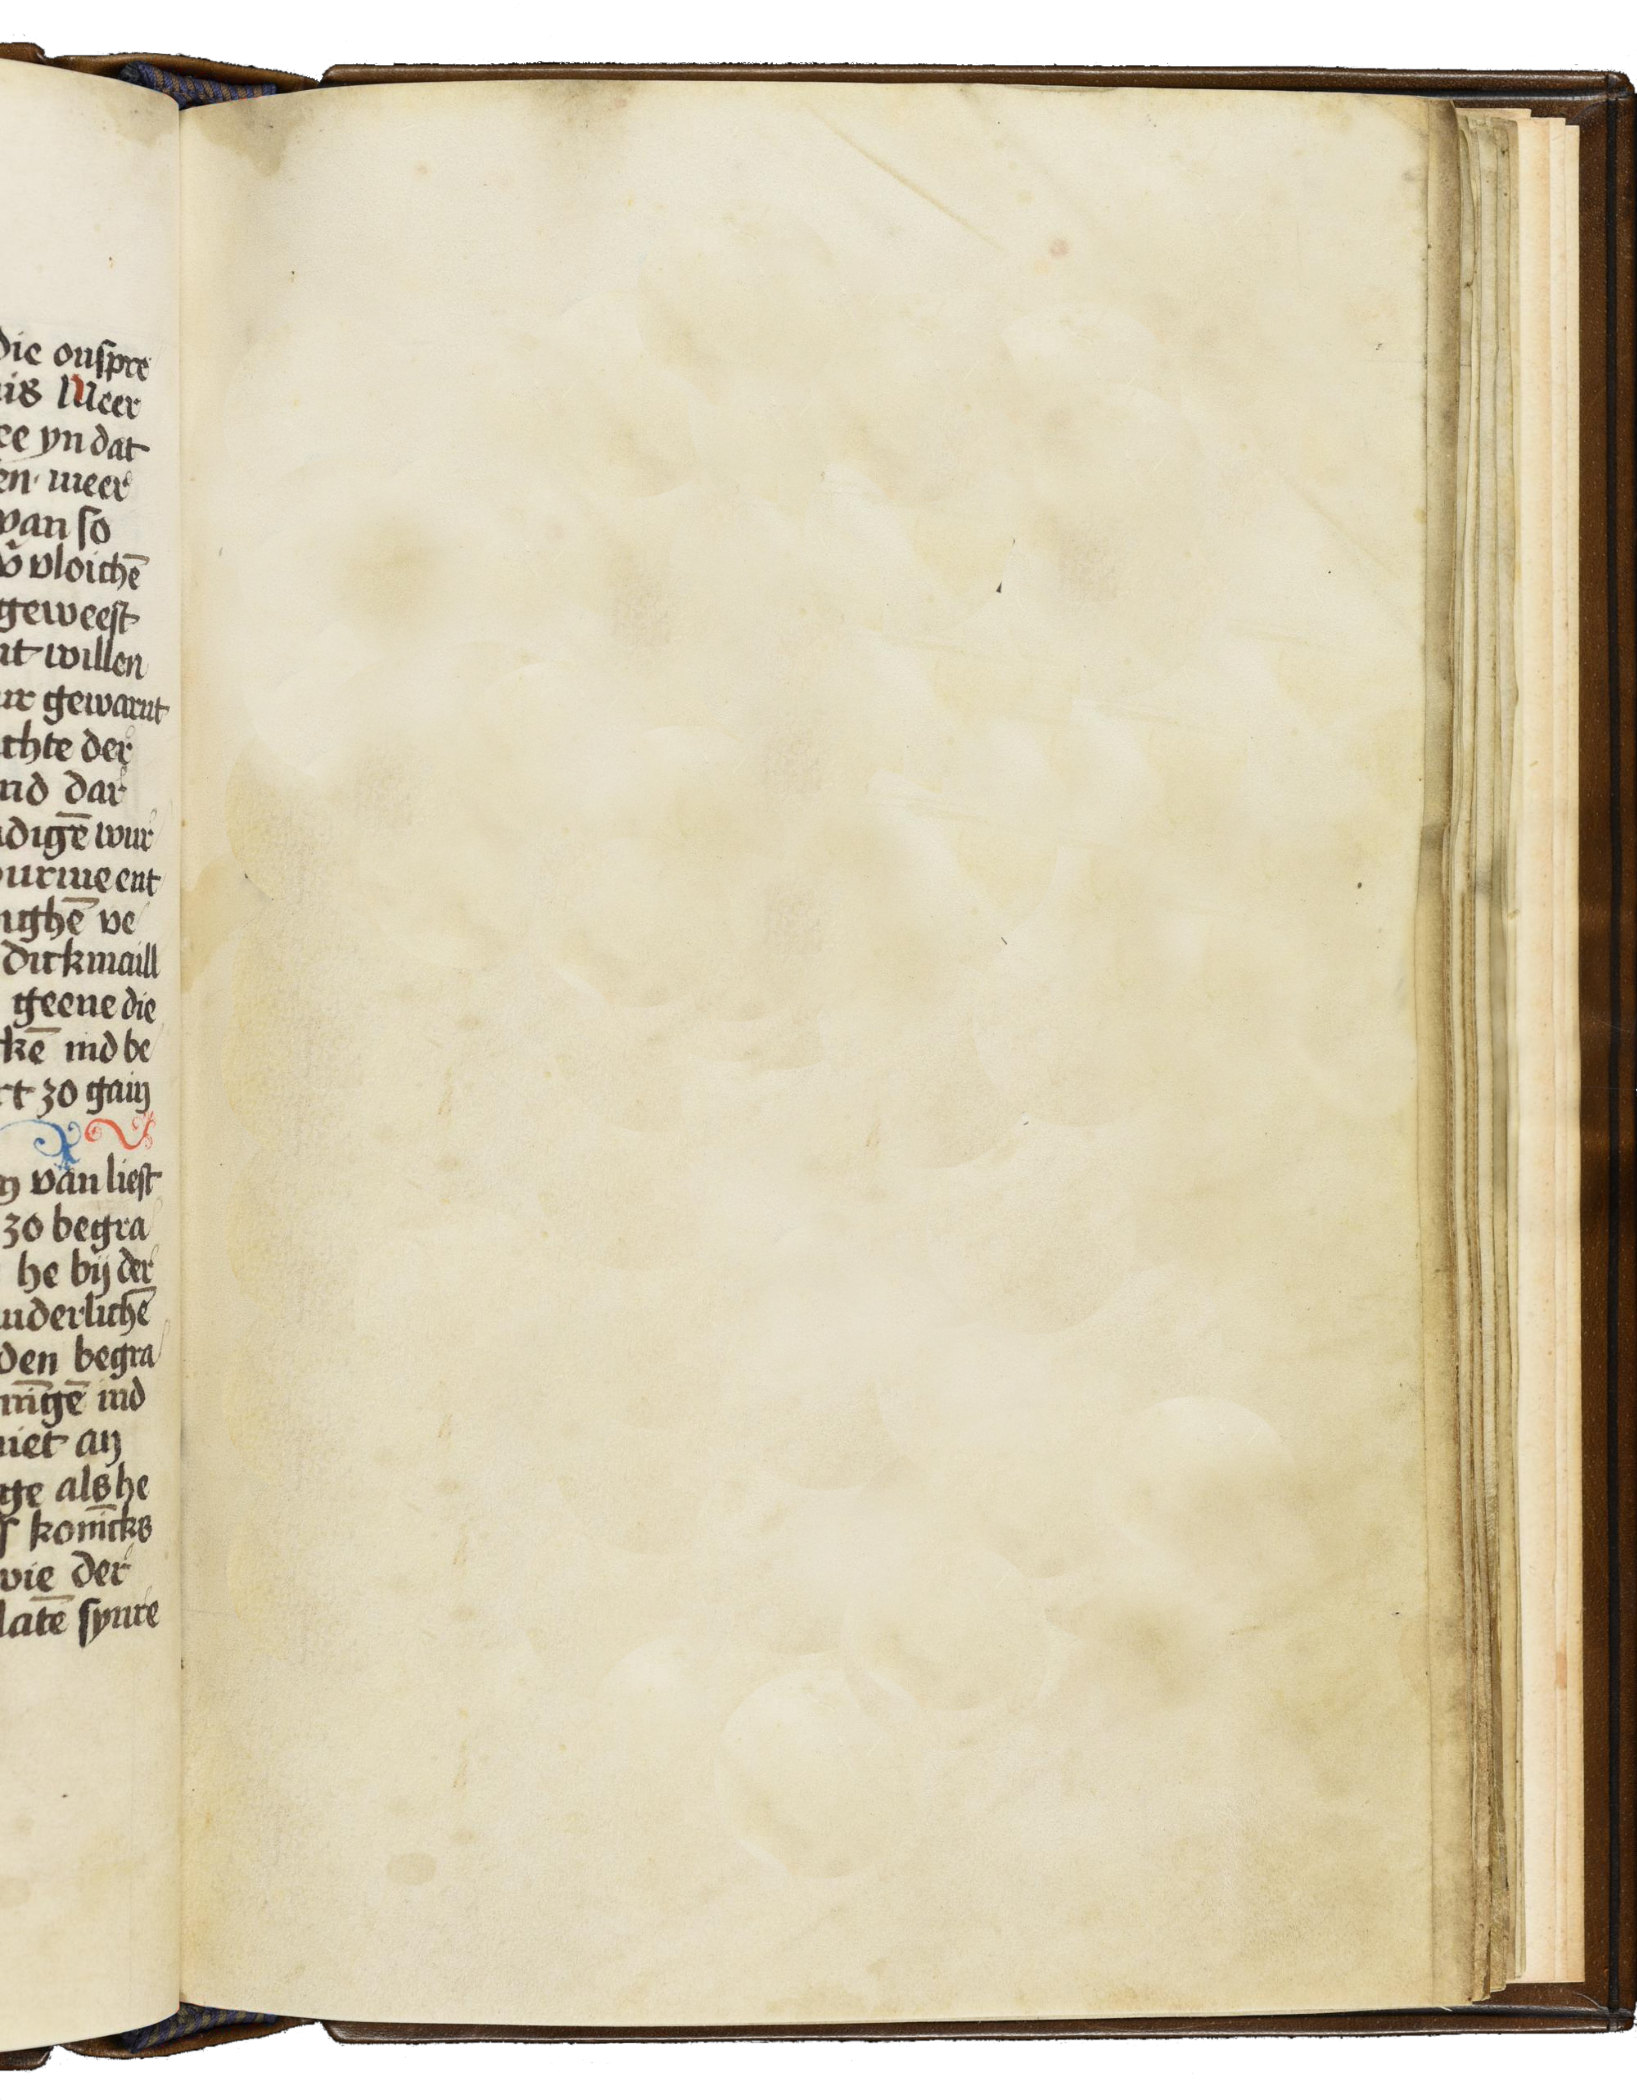 die onspre
is Meer
ce yn dat
en meer
van so
vloichē
geweest
nt willen
ur gewarnt
chte der
nd dar
digē wur
ourmeent
nghē ve
dickmaill
geene die
kē ind be
rt zo gain
van liest
zo begra
he bij der
nderlichē
den begra
nīgē ind
niet an
ge als he
konīcks
wie der
latē synre